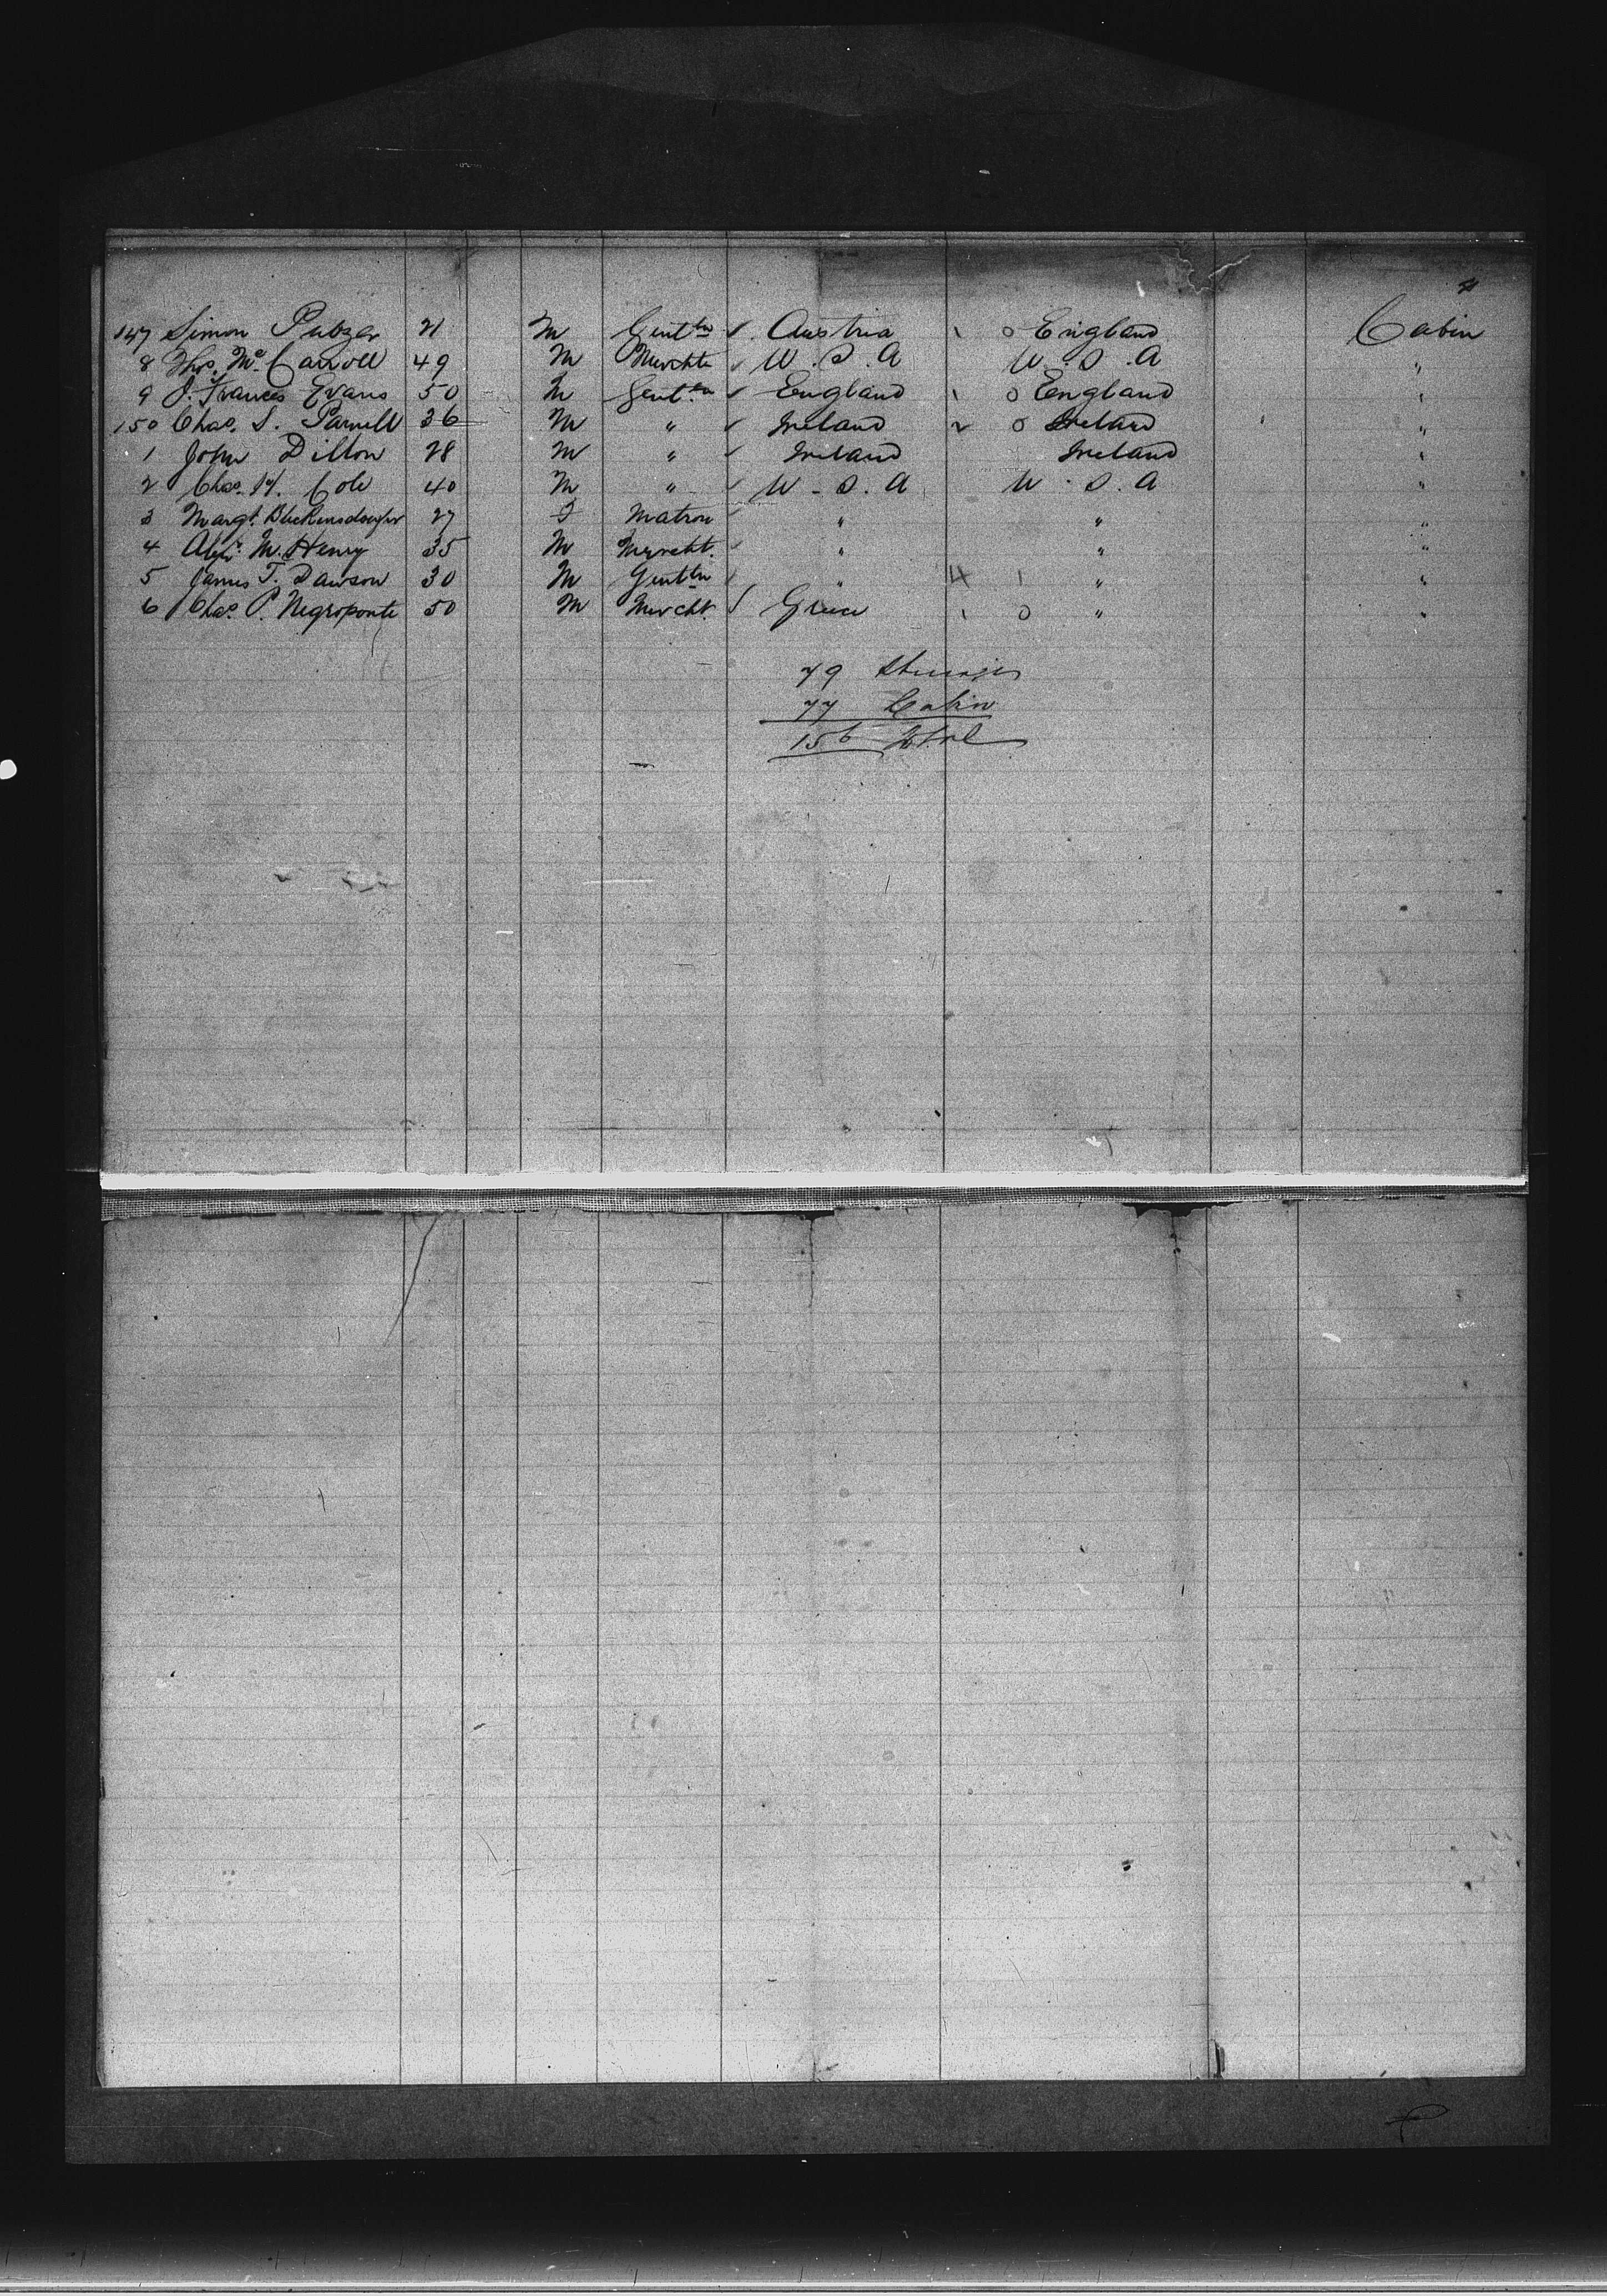 4
147 Simon Pubzer 21 M Gentln ✓ Austria 1 0 England Cabin
8 Thos. Mc. Carroll 49 M Merchte ✓ U.S.A U.S.A "
9 J. Frances Evans 50 M Gentln ✓ England 1 0 England "
150 Chas. S. Parnell 36 M " ✓ Ireland 2 0 Ireland "
1 John Dillon 28 M " ✓ Ireland Ireland "
2 Chas. H. Cole 40 M " ✓ U.S.A U.S.A "
3 Margt. 27 F Matron " " "
4 M. Henry 35 M Mercht. ✓ " " "
5 James T. Dawson 30 M Gentln ✓ " 4 1 " "
6 Chas. P. Negroponte 50 M Mercht. ✓ Greece 1 0 " "
79
77 Cabin
156 Total